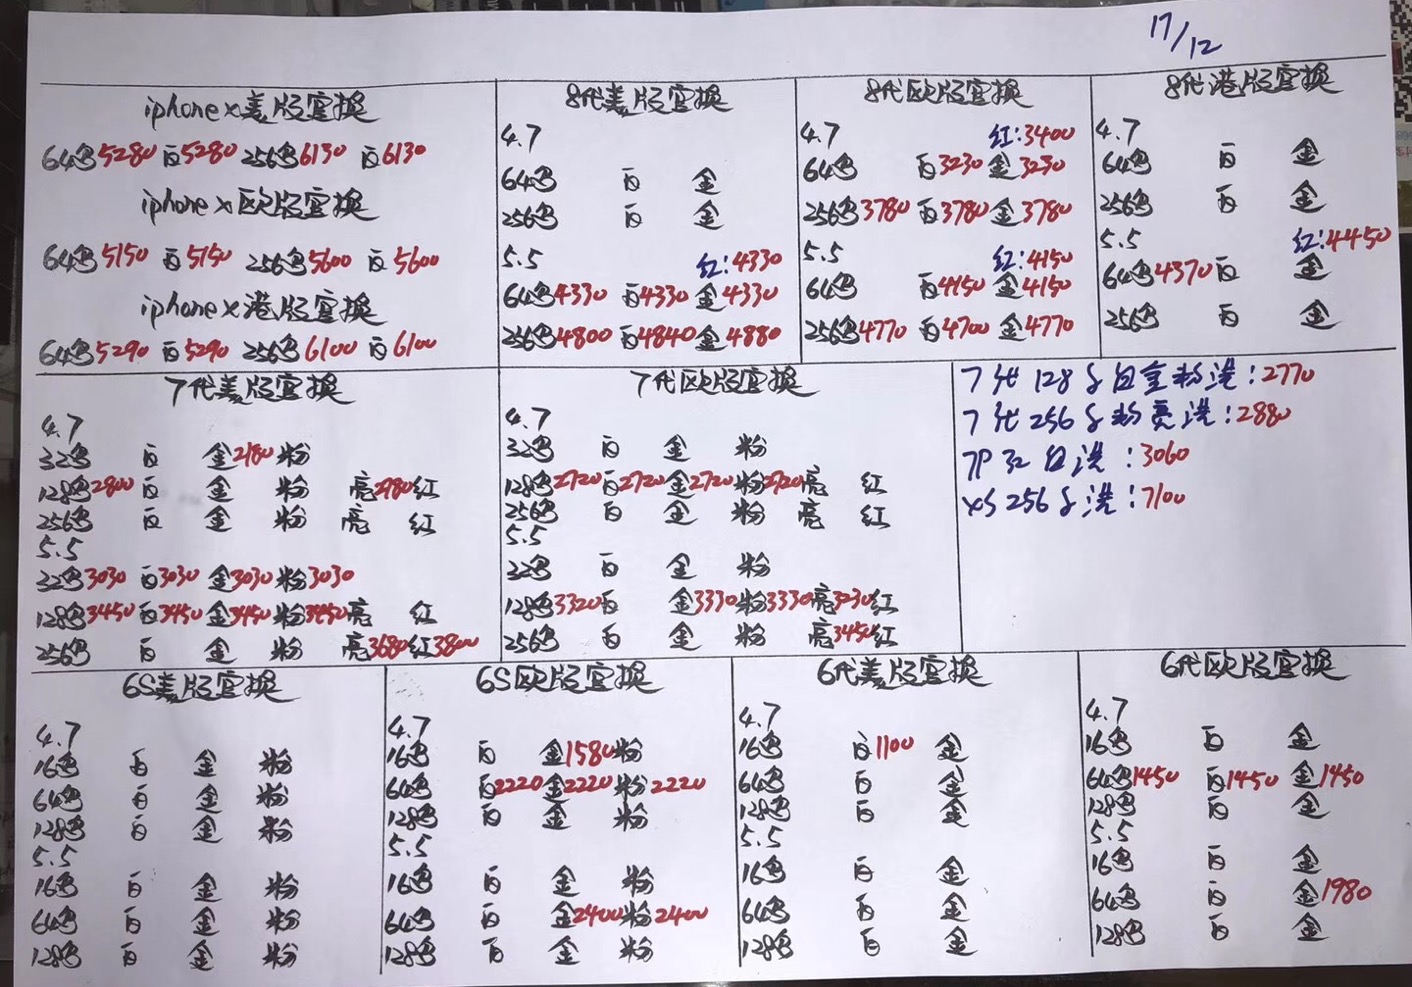 17/12
iphone x美版官换
64G 5280 白5280 256G 6130 白6130
iphone x欧版官换
64G 5150 白5150 256G 5600 白5600
iphone x港版官换
64G 5290 白5290 256G 6100 白6100
8代美版官换
4.7
64G 白 金
256G 白 金
5.5 红:4330
64G 4330 白4330 金4330
256G 4800 白4840 金4880
8代欧版官换
4.7 红:3400
64G 白3230 金3230
256G 3780 白3780 金3780
5.5 红:4150
64G 白4150 金4150
256G 4770 白4700 金4770
8代港版官换
4.7
64G 白 金
256G 白 金
5.5 红:4450
64G 4370 白 金
256G 白 金
7代美版官换
4.7
32G 白 金2180 粉
128G 2800 白 金 粉 亮2780 红
256G 白 金 粉 亮 红
5.5
32G 3030 白3030 金3030 粉3030
128G 3450 白3450 金3450 粉3450 亮 红
256G 白 金 粉 亮3680 红3800
7代欧版官换
4.7
32G 白 金 粉
128G 2720 白2720 金2720 粉2720 亮 红
256G 白 金 粉 亮 红
5.5
32G 白 金 粉
128G 3320 白 金3330 粉3330 亮3230 红
256G 白 金 粉 亮3450 红
7代 128G 白金粉港:2770
7代 256G 粉亮港:2880
7P 32 白港:3060
XS 256G港:7100
6S美版官换
4.7
16G 白 金 粉
64G 白 金 粉
128G 白 金 粉
5.5
16G 白 金 粉
64G 白 金 粉
128G 白 金 粉
6S欧版官换
4.7
16G 白 金1580 粉
64G 白2220 金2220 粉2220
128G 白 金 粉
5.5
16G 白 金 粉
64G 白 金2400 粉2400
128G 白 金 粉
6代美版官换
4.7
16G 白1100 金
64G 白 金
128G 白 金
5.5
16G 白 金
64G 白 金
128G 白 金
6代欧版官换
4.7
16G 白 金
64G 1450 白1450 金1450
128G 白 金
5.5
16G 白 金
64G 白 金1980
128G 白 金